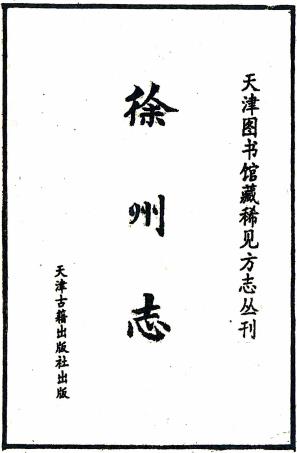 天津图书馆藏稀见方志丛刊
徐州志
天津古籍出版社出版